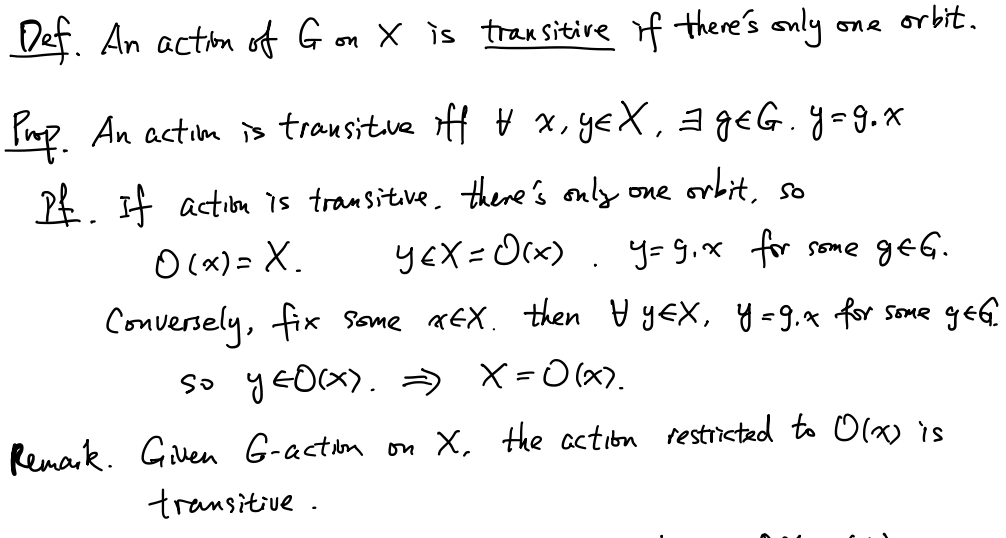 Def. An action of G on X is transitive if there's only one orbit.
Prop. An action is transitive iff ∀ x, y∈X, ∃ g∈G. y=g.x
Pf. If action is transitive. there's only one orbit, so
O(x)=X. y∈X=O(x). y=g.x for some g∈G.
Conversely, fix some x∈X. then ∀ y∈X, y=g.x for some g∈G.
so y∈O(x). ⇒ X=O(x).
Remark. Given G-action on X, the action restricted to O(x) is
transitive.